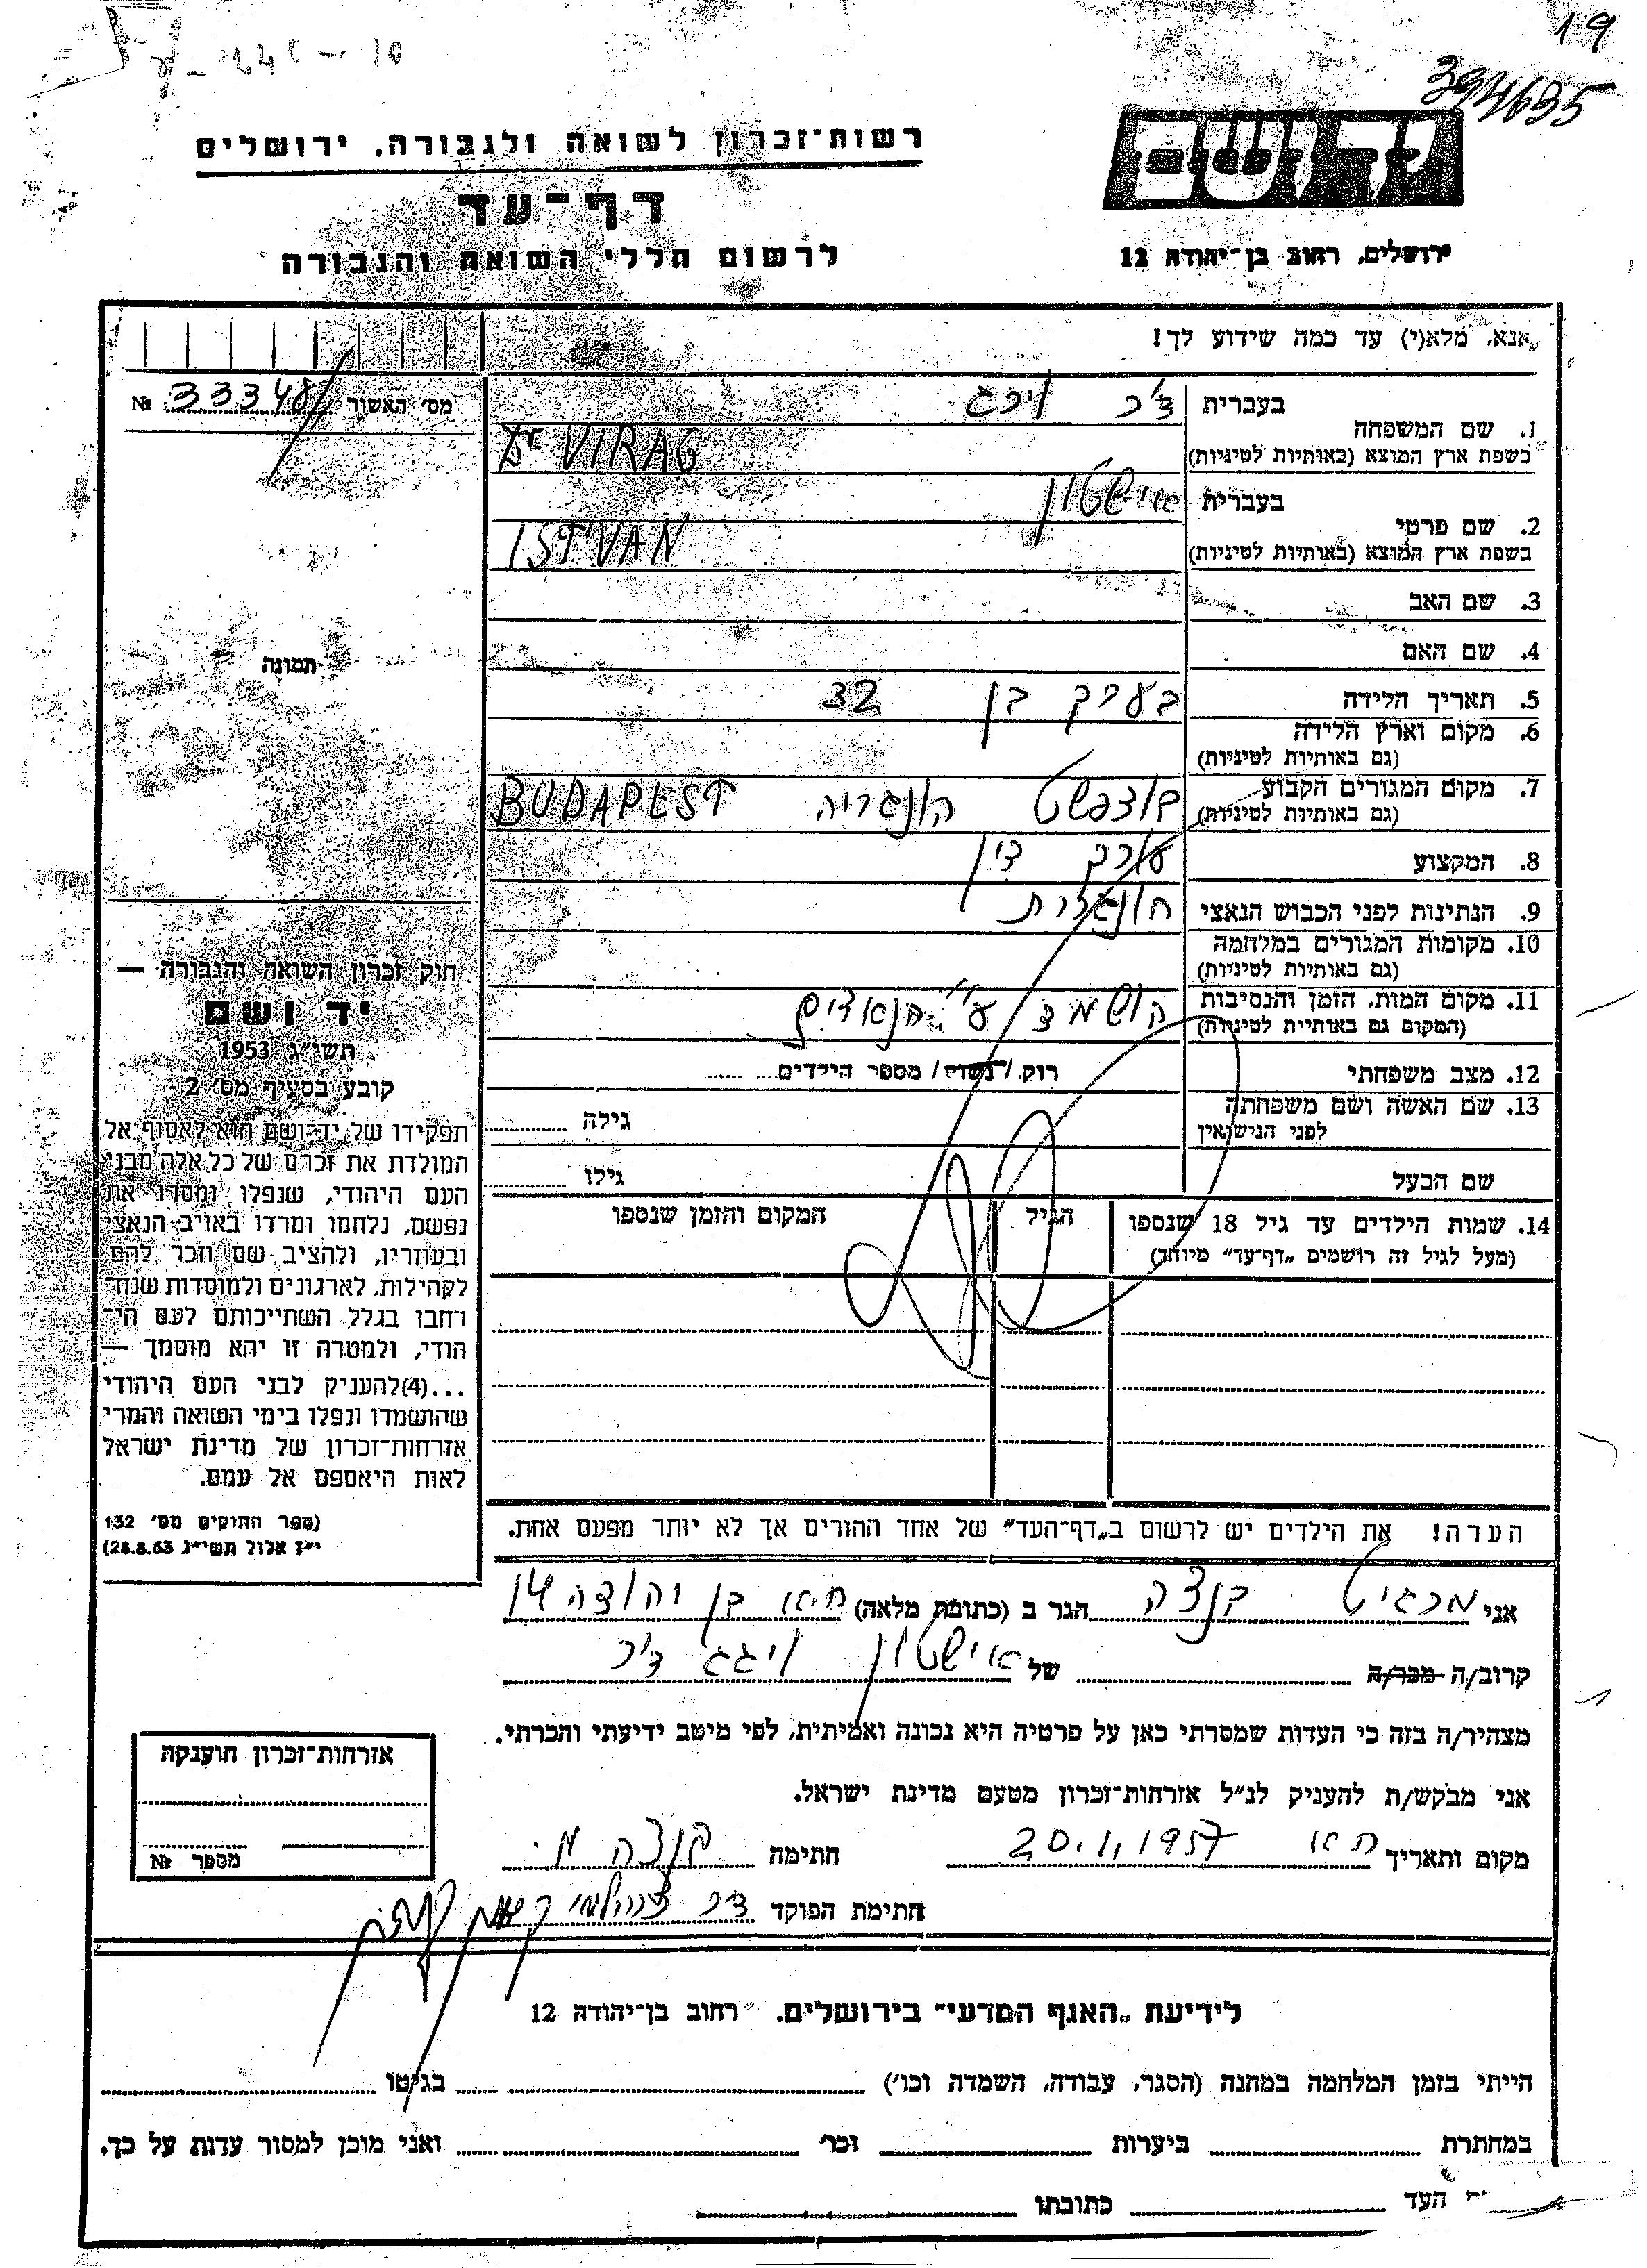 19
394635
יד ושם
רשות־זכרון לשואה ולגבורה, ירושלים
דף־עד
לרשום חללי השואה והגבורה
ירושלים, רחוב בן־יהודה 12
אנא, מלא(י) עד כמה שידוע לך!
מס' האשור 33348 №
בעברית ד"ר וירג
1. שם המשפחה
בשפת ארץ המוצא (באותיות לטיניות) Dr VIRAG
בעברית אישטון
2. שם פרטי
בשפת ארץ המוצא (באותיות לטיניות) ISTVAN
3. שם האב
4. שם האם
תמונה
5. תאריך הלידה בערך בן 32
6. מקום וארץ הלידה
(גם באותיות לטיניות)
7. מקום המגורים הקבוע
(גם באותיות לטיניות) בודפשט הונגריה BUDAPEST
8. המקצוע עורך דין
9. הנתינות לפני הכבוש הנאצי הונגרית
10. מקומות המגורים במלחמה
(גם באותיות לטיניות)
11. מקום המות, הזמן והנסיבות
(המקום גם באותיות לטיניות) הושמד ע"י הנאצים
12. מצב משפחתי רוק / נשוי / מספר הילדים
13. שם האשה ושם משפחתה
לפני הנישואין גילה
שם הבעל גילו
14. שמות הילדים עד גיל 18 שנספו הגיל המקום והזמן שנספו
(מעל לגיל זה רושמים „דף־עד" מיוחד)
חוק זכרון השואה והגבורה —
יד ושם
תשי"ג 1953
קובע בסעיף מס' 2
תפקידו של יד־ושם הוא לאסוף אל
המולדת את זכרם של כל אלה מבני
העם היהודי, שנפלו ומסרו את
נפשם, נלחמו ומרדו באויב הנאצי
ובעוזריו, ולהציב שם וזכר להם
לקהילות, לארגונים ולמוסדות שנח־
רחבו בגלל השתייכותם לעם הי־
הודי, ולמטרה זו יהא מוסמך —
...(4)להעניק לבני העם היהודי
שהושמדו ונפלו בימי השואה והמרי
אזרחות־זכרון של מדינת ישראל
לאות היאספם אל עמם.
(ספר החוקים מס' 132
י"ז אלול תשי"ג 28.8.53)
הערה! את הילדים יש לרשום ב„דף־העד" של אחד ההורים אך לא יותר מפעם אחת.
אני מרגיט קנצה הגר ב (כתובת מלאה) ת״א בן יהודה 14
קרוב/ה מכר/ה של אישטון וירג ד"ר
מצהיר/ה בזה כי העדות שמסרתי כאן על פרטיה היא נכונה ואמיתית, לפי מיטב ידיעתי והכרתי.
אני מבקש/ת להעניק לנ"ל אזרחות־זכרון מטעם מדינת ישראל.
מקום ותאריך ת״א 20.1.1957 חתימה קנצה מ.
חתימת הפוקד ד"ר
אזרחות־זכרון הוענקה
מספר №
לידיעת „האגף המדעי" בירושלים, רחוב בן־יהודה 12
הייתי בזמן המלחמה במחנה (הסגר, עבודה, השמדה וכו') בגיטו
במחתרת ביערות וכו' ואני מוכן למסור עדות על כך.
העד כתובתו